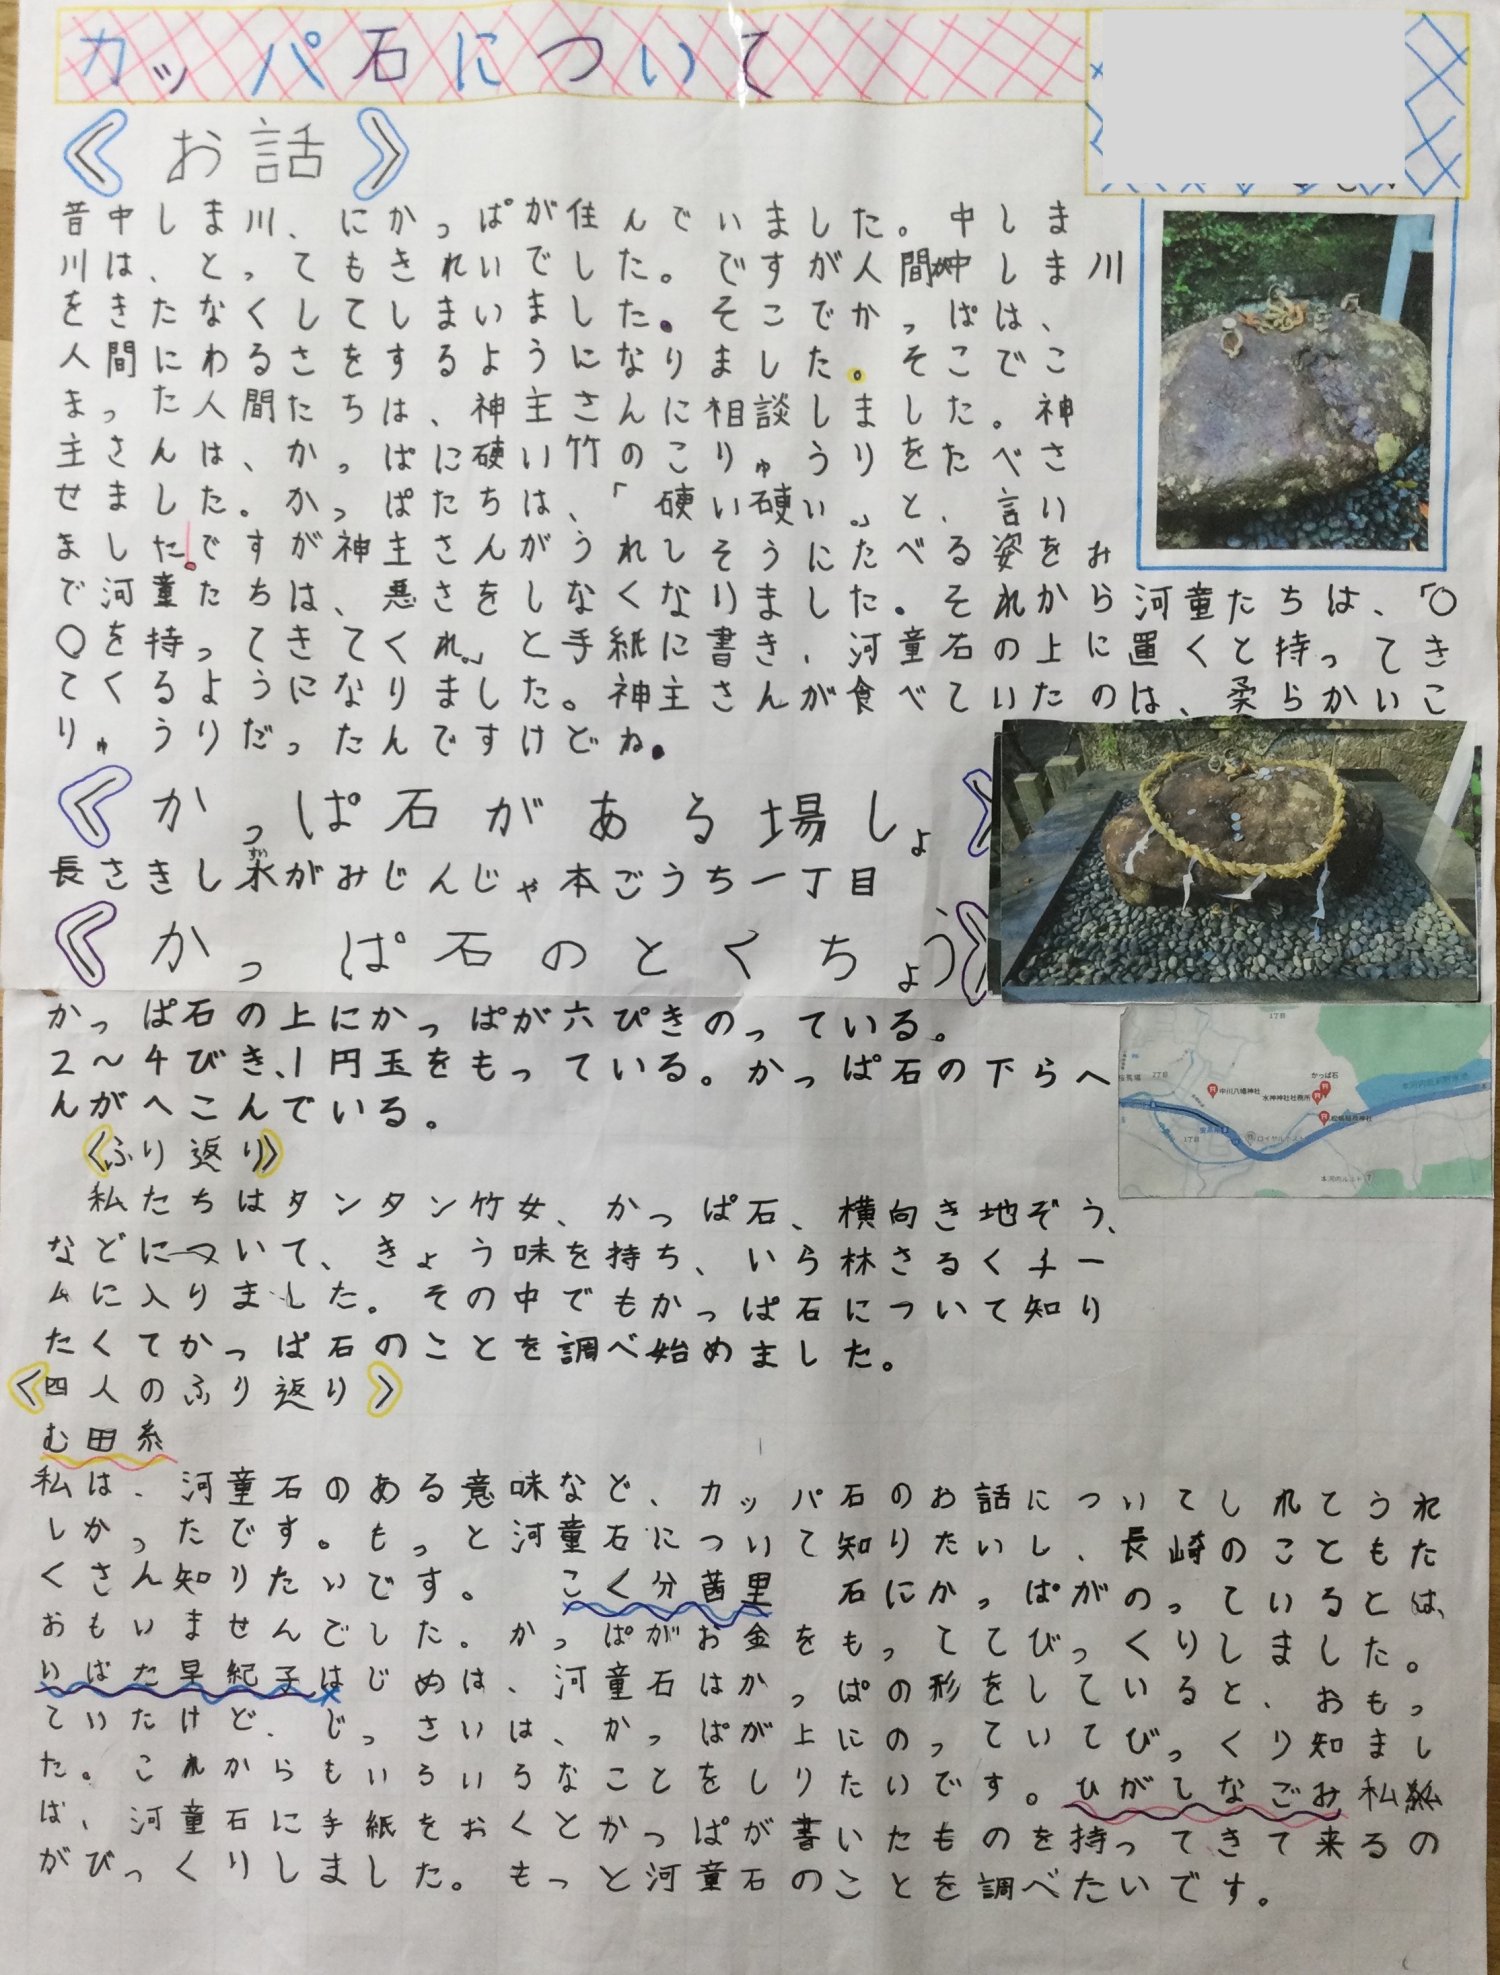 カッパ石について
《お話》
昔中しま川、にかっぱが住んでいました。中しま
川は、とってもきれいでした。ですが人間が中しま川
をきたなくしてしまいました。そこでかっぱは、
人間にわるさをするようになりました。そこでこ
まった人間たちは、神主さんに相談しました。神
主さんは、かっぱに硬い竹のこりゅうりをたべさ
せました。かっぱたちは、「硬い硬い。」と、言い
ました。ですが神主さんがうれしそうにたべる姿をみ
で河童たちは、悪さをしなくなりました。それから河童たちは、「〇
〇を持ってきてくれ。」と手紙に書き、河童石の上に置くと持ってき
てくるようになりました。神主さんが食べていたのは、柔らかいこ
りゅうりだったんですけどね。
《かっぱ石がある場しょ》
長さきし水がみじんじゃ本ごうち一丁目
《かっぱ石のとくちょう》
かっぱ石の上にかっぱが六ぴきのっている。
2〜4びき、1円玉をもっている。かっぱ石の下らへ
んがへこんでいる。
1丁目
桜馬場
2丁目
かっぱ石
中川八幡神社
水神神社社務所
1丁目
ロイヤルホスト
〈ふり返り〉
私たちはタンタン竹女、かっぱ石、横向き地ぞう、
などについて、きょう味を持ち、いら林さるくチー
ムに入りました。その中でもかっぱ石について知り
たくてかっぱ石のことを調べ始めました。
〈四人のふり返り〉
む田糸
私は、河童石のある意味など、カッパ石のお話についてしれてうれ
しかったです。もっと河童石について知りたいし、長崎のこともた
くさん知りたいです。 こく分茜里 石にかっぱがのっているとは、
おもいませんでした。かっぱがお金をもっててびっくりしました。
いばた早紀子はじめは、河童石はかっぱの形をしていると、おもっ
ていたけど、じっさいは、かっぱが上にのっていてびっくり知まし
た。これからもいろいろなことをしりたいです。ひがしなごみ私
は、河童石に手紙をおくとかっぱが書いたものを持ってきて来るの
がびっくりしました。もっと河童石のことを調べたいです。